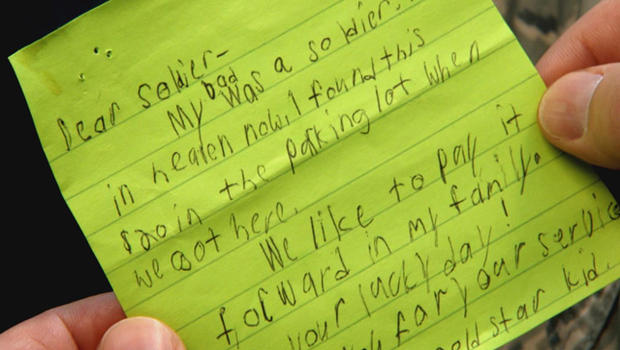 Dear soldier-
My dad was a soldier.
in heaven now. I found this
$20 in the parking lot when
we got here.
We like to pay it
forward in my family.
your lucky day!
for your service
old star kid.